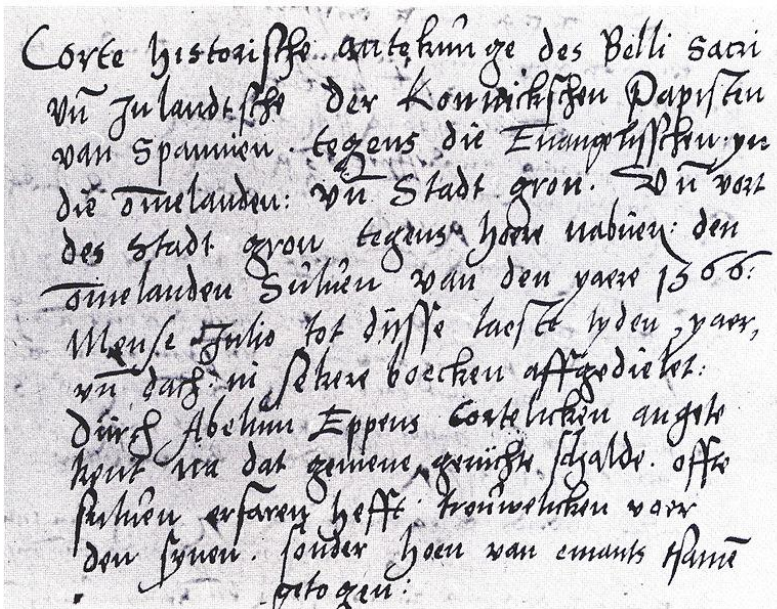 Corte historische antekunge des Belli Sacri
vn̄ Inlandtsche der Konnickschen Papisten
van Spannien. tegens die Euangelisschen yn
die om̄elanden: vn̄ Stadt gron. Vn̄ vort
des Stadt gron tegens hoere nabuer: den
om̄elanden Suluen van den yaere 1566:
Mense Julio tot dusse laeste tyden, yaer,
vn̄ dach: in sekere boecken affgedielet:
durch Abelum Eppens Cortelicken angete
kent na dat gemene geruchte schalde. offte
suluen erfaren hefft trouwelicken voer
den synen. sonder hoen van emants tsamē
getogen: